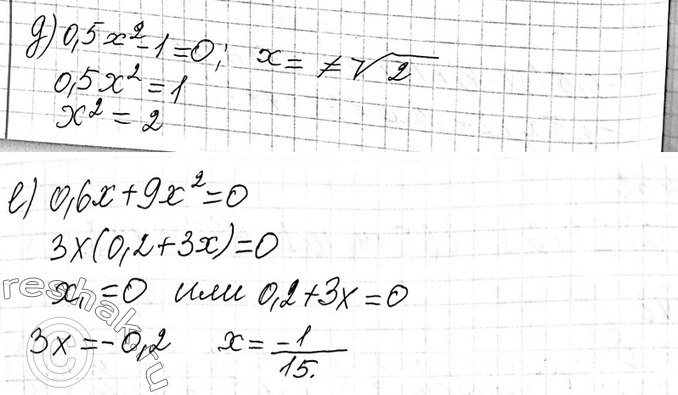 д) 0,5x² - 1 = 0; x = ≠√2
0,5x² = 1
x² = 2
е) 0,6x + 9x² = 0
3x(0,2 + 3x) = 0
x₁ = 0 или 0,2 + 3x = 0
3x = -0,2 x = -1/15.
reshak.ru